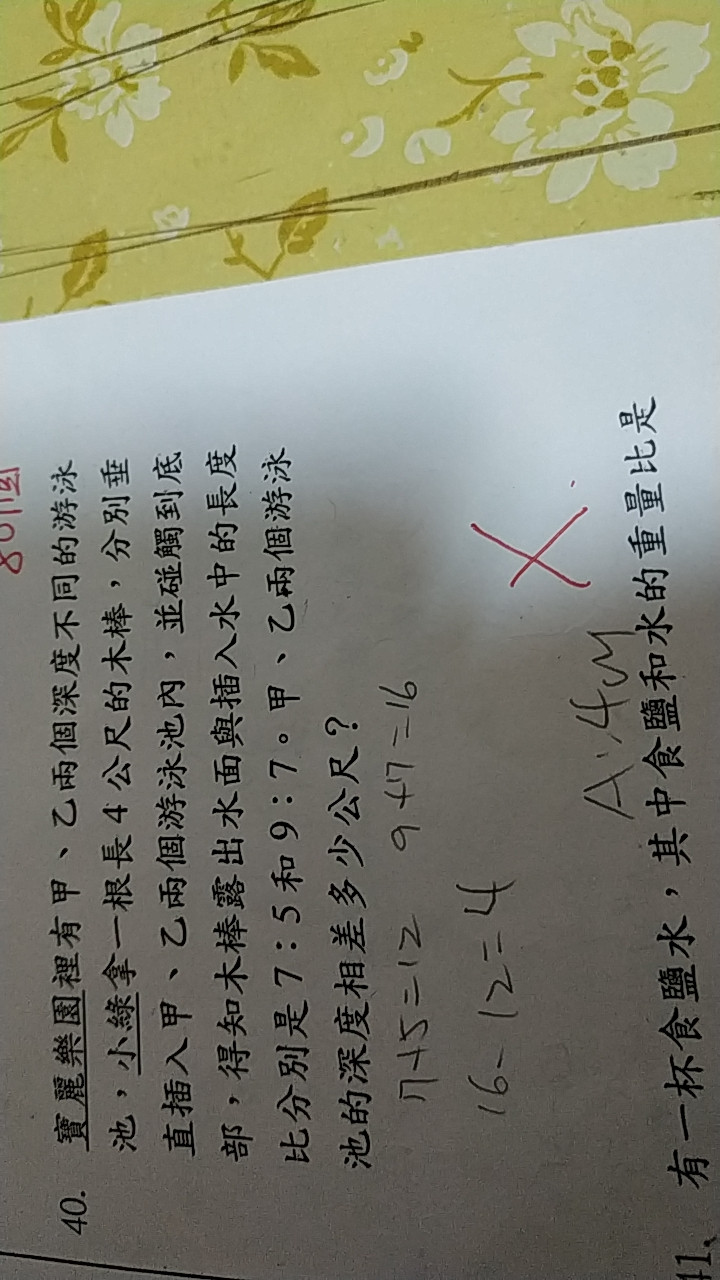 40. 寶麗樂園裡有甲、乙兩個深度不同的游泳
池，小綠拿一根長4公尺的木棒，分別垂
直插入甲、乙兩個游泳池內，並碰觸到底
部，得知木棒露出水面與插入水中的長度
比分別是7：5和9：7。甲、乙兩個游泳
池的深度相差多少公尺？
7+5=12 9+7=16
16-12=4
A:4M
有一杯食鹽水，其中食鹽和水的重量比是